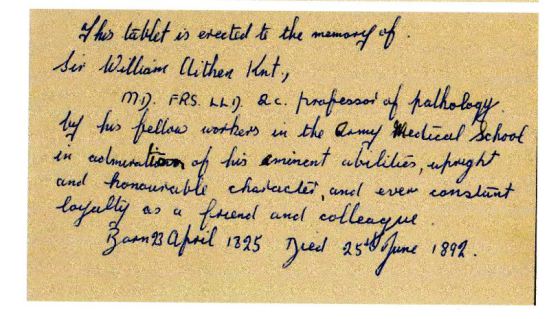 This tablet is erected to the memory of.
Sir William Aitken Knt,
M.D. FRS. LL.D. &c. professor of pathology.
by his fellow workers in the Army Medical School
in admiration of his eminent abilities, upright
and honourable character, and ever constant
loyalty as a friend and colleague.
Born 23 April 1825 Died 25th June 1892.